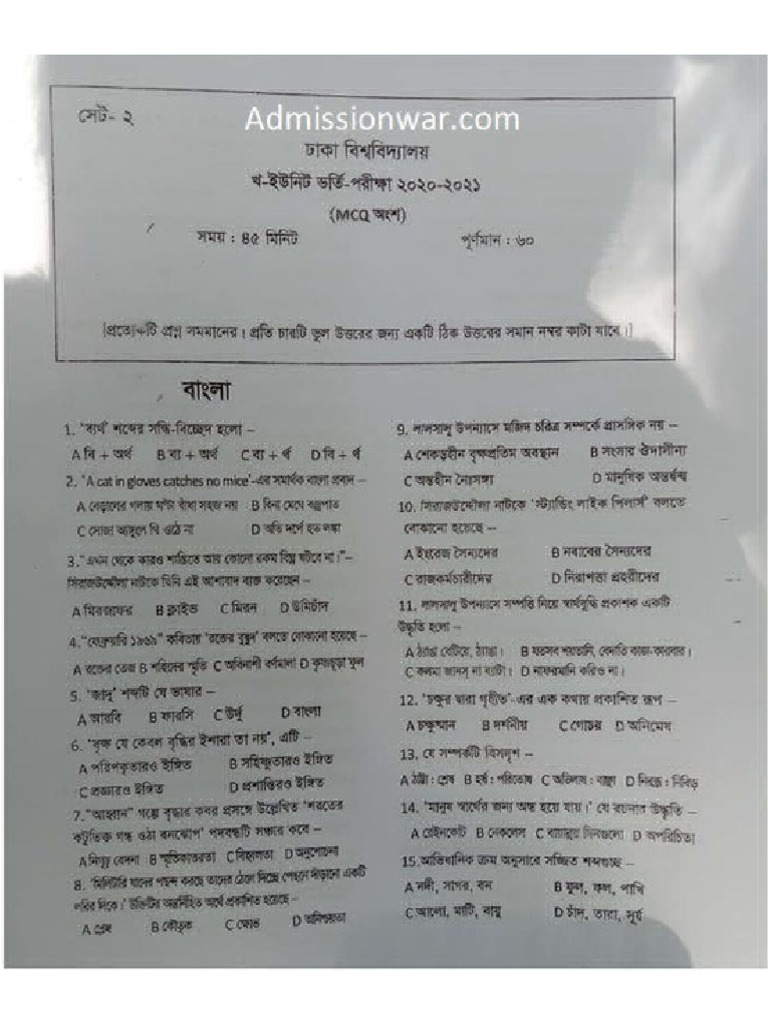 সেট- ২
Admissionwar.com
ঢাকা বিশ্ববিদ্যালয়
খ-ইউনিট ভর্তি-পরীক্ষা ২০২০-২০২১
(MCQ অংশ)
সময় : ৪৫ মিনিট
পূর্ণমান : ৬০
প্রশ্ন সমমানের। প্রতি চারটি ভুল উত্তরের জন্য একটি ঠিক উত্তরের সমান নম্বর কাটা যাবে।]
বাংলা
1. 'ব্যর্থ' শব্দের সন্ধি-বিচ্ছেদ হলো –
A বি + অর্থ B ব্য + অর্থ C ব্য + র্থ D বি + র্থ
2. 'A cat in gloves catches no mice'-এর সমার্থক বাংলা প্রবাদ –
A বেড়ালের গলায় ঘণ্টা বাঁধা সহজ নয় B বিনা মেঘে বজ্রপাত
C সোজা আঙুলে ঘি ওঠে না D অতি দর্পে হত লঙ্কা
3. "এখন থেকে কারও শান্তিতে আর কোনো রকম বিঘ্ন ঘটবে না।"–
সিরাজউদ্দৌলা নাটকে যিনি এই আশাবাদ ব্যক্ত করেছেন –
A মিরজাফর B ক্লাইভ C মিরন D উমিচাঁদ
4. "ফেব্রুয়ারি ১৯৬৯" কবিতায় 'রক্তের বুদ্বুদ' বলতে বোঝানো হয়েছে –
A রক্তের তেজ B শহিদের স্মৃতি C অবিনাশী বর্ণমালা D কৃষ্ণচূড়া ফুল
5. 'জাদু' শব্দটি যে ভাষার –
A আরবি B ফারসি C উর্দু D বাংলা
6. 'বৃক্ষ যে কেবল বৃদ্ধির ইশারা তা নয়', এটি –
A পরিপক্বতারও ইঙ্গিত B সহিষ্ণুতারও ইঙ্গিত
C প্রজ্ঞারও ইঙ্গিত D প্রশান্তিরও ইঙ্গিত
7. "আহ্বান" গল্পে বৃদ্ধার কবর প্রসঙ্গে উল্লেখিত 'শরতের
কটুতিক্ত গন্ধ ওঠা বনঝোপ' পদবন্ধটি সঞ্চার করে –
A নিগূঢ় বেদনা B স্মৃতিকাতরতা C বিহ্বলতা D অনুশোচনা
8. 'মিলিটারি যাদের পছন্দ করছে তাদের ঠেলে দিচ্ছে পেছনে দাঁড়ানো একটি
লরির দিকে।' উক্তিটির অন্তর্নিহিত অর্থে প্রকাশিত হয়েছে –
A শ্লেষ B কৌতুক C ক্ষোভ D অনিশ্চয়তা
9. লালসালু উপন্যাসে মজিদ চরিত্র সম্পর্কে প্রাসঙ্গিক নয় –
A শেকড়হীন বৃক্ষপ্রতিম অবস্থান B সংসার ঔদাসীন্য
C অন্তহীন নৈঃসঙ্গ্য D মানুষিক অন্তর্দ্বন্দ্ব
10. সিরাজউদ্দৌলা নাটকে 'স্ট্যান্ডিং লাইক পিলার্স' বলতে
বোঝানো হয়েছে –
A ইংরেজ সৈন্যদের B নবাবের সৈন্যদের
C রাজকর্মচারীদের D নিরাপত্তা প্রহরীদের
11. লালসালু উপন্যাসে সম্পত্তি নিয়ে স্বার্থবুদ্ধি প্রকাশক একটি
উদ্ধৃতি হলো –
A ঠ্যাঙা বেটিরে, ঠ্যাঙা। B যতসব শয়তানি, বেদাতি কাজ-কারবার।
C কলমা জানস্ না ব্যাটা। D নাফরমানি করিও না।
12. 'চক্ষুর দ্বারা গৃহীত'-এর এক কথায় প্রকাশিত রূপ –
A চক্ষুষ্মান B দর্শনীয় C গোচর D অনিমেষ
13. যে সম্পর্কটি বিসদৃশ –
A ঠাট্টা : শ্লেষ B হর্ষ : পরিতোষ C অভিলাষ : বাঞ্ছা D নিরন্ত : নিবিড়
14. 'মানুষ স্বার্থের জন্য অন্ধ হয়ে যায়।' যে রচনার উদ্ধৃতি –
A রেইনকোট B নেকলেস C বায়ান্নর দিনগুলো D অপরিচিতা
15. আভিধানিক ক্রম অনুসারে সজ্জিত শব্দগুচ্ছ –
A নদী, সাগর, বন B ফুল, ফল, পাখি
C আলো, মাটি, বায়ু D চাঁদ, তারা, সূর্য